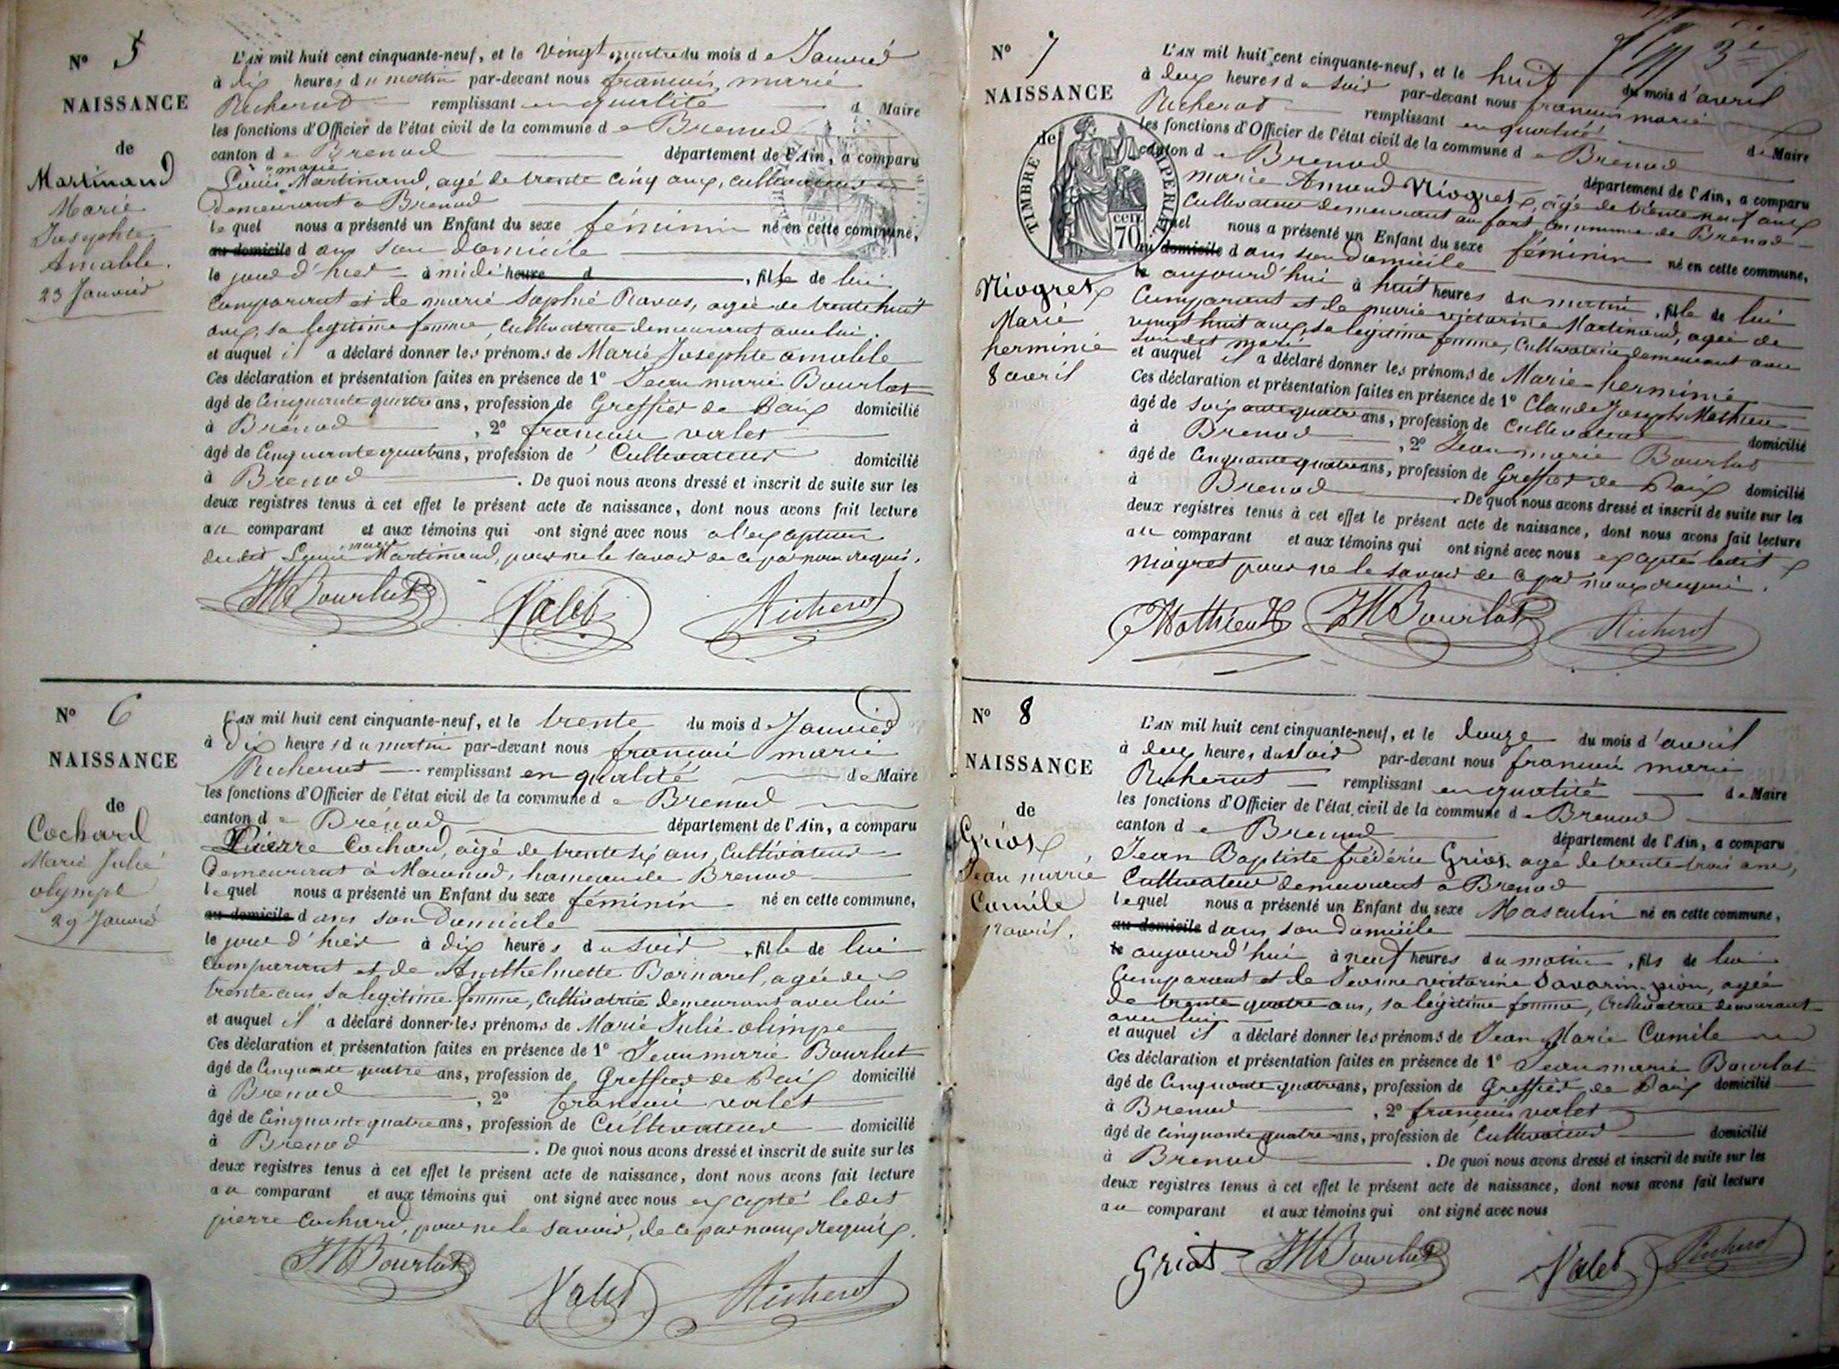 N° 5
NAISSANCE
de
Martinand
Marie
Josephte
Amable.
23 Janvier
L'AN mil huit cent cinquante-neuf, et le vingt quatre du mois de Janvier
à dix heures du matin par-devant nous francois marie
Richerot remplissant en qualité d Maire
les fonctions d'Officier de l'état civil de la commune de Brenod
canton de Brenod département de l'Ain, a comparu
Louis marie Martinand, agé de trente cinq ans, cultivateur
demeurant a Brenod
lequel nous a présenté un Enfant du sexe féminin né en cette commune,
au domicile dans son domicile
le jour d'hier à midi heure d , fille de lui
Comparant et de marie Sophie Ravos, agée de trente huit
ans, sa legitime femme, cultivatrice demeurant avec lui.
et auquel il a déclaré donner les prénoms de Marie Josephte amable
Ces déclaration et présentation faites en présence de 1° Jean marie Bourlot
âgé de Cinquante quatre ans, profession de Greffier de Paix domicilié
à Brénod , 2° francois valet
âgé de Cinquante quatre ans, profession de Cultivateur domicilié
à Brenod . De quoi nous avons dressé et inscrit de suite sur les
deux registres tenus à cet effet le présent acte de naissance, dont nous avons fait lecture
au comparant et aux témoins qui ont signé avec nous a l'exception
dudit Louis marie Martinand, pour ne le savoir de ce par nous requis.
JM Bourlot Valet Richerot
N° 6
NAISSANCE
de
Cochard
Marie Julie
olympe
29 Janvier
L'AN mil huit cent cinquante-neuf, et le trente du mois de Janvier
à Dix heures du matin par-devant nous francois marie
Richerot remplissant en qualité de Maire
les fonctions d'Officier de l'état civil de la commune de Brenod
canton de Brénod département de l'Ain, a comparu
Pierre Cochard, agé de trente six ans, Cultivateur
Demeurant à Macconod, hameau de Brenod
lequel nous a présenté un Enfant du sexe féminin né en cette commune,
au domicile dans son Domicile
le jour d'hier à dix heures du soir , fille de lui
Comparant et de Anthelmette Bornarel, agée de
trente ans, sa legitime femme, cultivatrice demeurant avec lui
et auquel il a déclaré donner les prénoms de Marie Julie olimpe
Ces déclaration et présentation faites en présence de 1° Jean marie Bourlot
âgé de Cinquante quatre ans, profession de Greffier de Paix domicilié
à Brenod , 2° francois valet
âgé de Cinquante quatre ans, profession de Cultivateur domicilié
à Brenod . De quoi nous avons dressé et inscrit de suite sur les
deux registres tenus à cet effet le présent acte de naissance, dont nous avons fait lecture
au comparant et aux témoins qui ont signé avec nous excepté ledit
pierre Cochard, pour ne le savoir, de ce par nous requis.
JM Bourlot Valet Richerot
3e
N° 7
NAISSANCE
de
TIMBRE IMPERIAL
CEN. 70
Niogret
Marie
herminie
8 avril
L'AN mil huit cent cinquante-neuf, et le huit du mois d'avril
à deux heures du soir par-devant nous francois marie
Richerot remplissant en qualité de Maire
les fonctions d'Officier de l'état civil de la commune de Brenod
canton de Brenod département de l'Ain, a comparu
marie Amand Niogret, agé de trente neuf ans
Cultivateur demeurant au fort, commune de Brenod
lequel nous a présenté un Enfant du sexe féminin né en cette commune,
au domicile dans son domicile
le aujourd'hui à huit heures du matin , fille de lui
Comparant et de marie victorine Martinand, agée de
vingt huit ans, sa legitime femme, Cultivatrice demeurant avec
son dit mari
et auquel il a déclaré donner les prénoms de Marie herminie
Ces déclaration et présentation faites en présence de 1° Claude Joseph Mathieu
âgé de soixante quatre ans, profession de Cultivateur domicilié
à Brenod , 2° Jean marie Bourlot
âgé de Cinquante quatre ans, profession de Greffier de Paix domicilié
à Brenod . De quoi nous avons dressé et inscrit de suite sur les
deux registres tenus à cet effet le présent acte de naissance, dont nous avons fait lecture
au comparant et aux témoins qui ont signé avec nous excepté ledit
Niogret pour ne le savoir de ce par nous requis.
Mathieu JM Bourlot Richerot
N° 8
NAISSANCE
de
Griot
Jean marie
Camile
12 avril.
L'AN mil huit cent cinquante-neuf, et le douze du mois d'avril
à deux heures du soir par-devant nous francois marie
Richerot remplissant en qualité de Maire
les fonctions d'Officier de l'état civil de la commune de Brenod
canton de Brenod département de l'Ain, a comparu
Jean Baptiste frédéric Griot agé de trente trois ans,
Cultivateur demeurant a Brenod
lequel nous a présenté un Enfant du sexe Masculin né en cette commune,
au domicile dans son Domicile
le aujourd'hui à neuf heures du matin , fils de lui
Comparant et de Jeanne victorine Savarin-pion, agée
de trente quatre ans, sa legitime femme, Cultivatrice demeurant
avec lui
et auquel il a déclaré donner les prénoms de Jean Marie Camile
Ces déclaration et présentation faites en présence de 1° Jean marie Bourlot
âgé de Cinquante quatre ans, profession de Greffier de Paix domicilié
à Brenod , 2° françois valet
âgé de Cinquante quatre ans, profession de Cultivateur domicilié
à Brenod . De quoi nous avons dressé et inscrit de suite sur les
deux registres tenus à cet effet le présent acte de naissance, dont nous avons fait lecture
au comparant et aux témoins qui ont signé avec nous
Griot JM Bourlot Valet Richerot